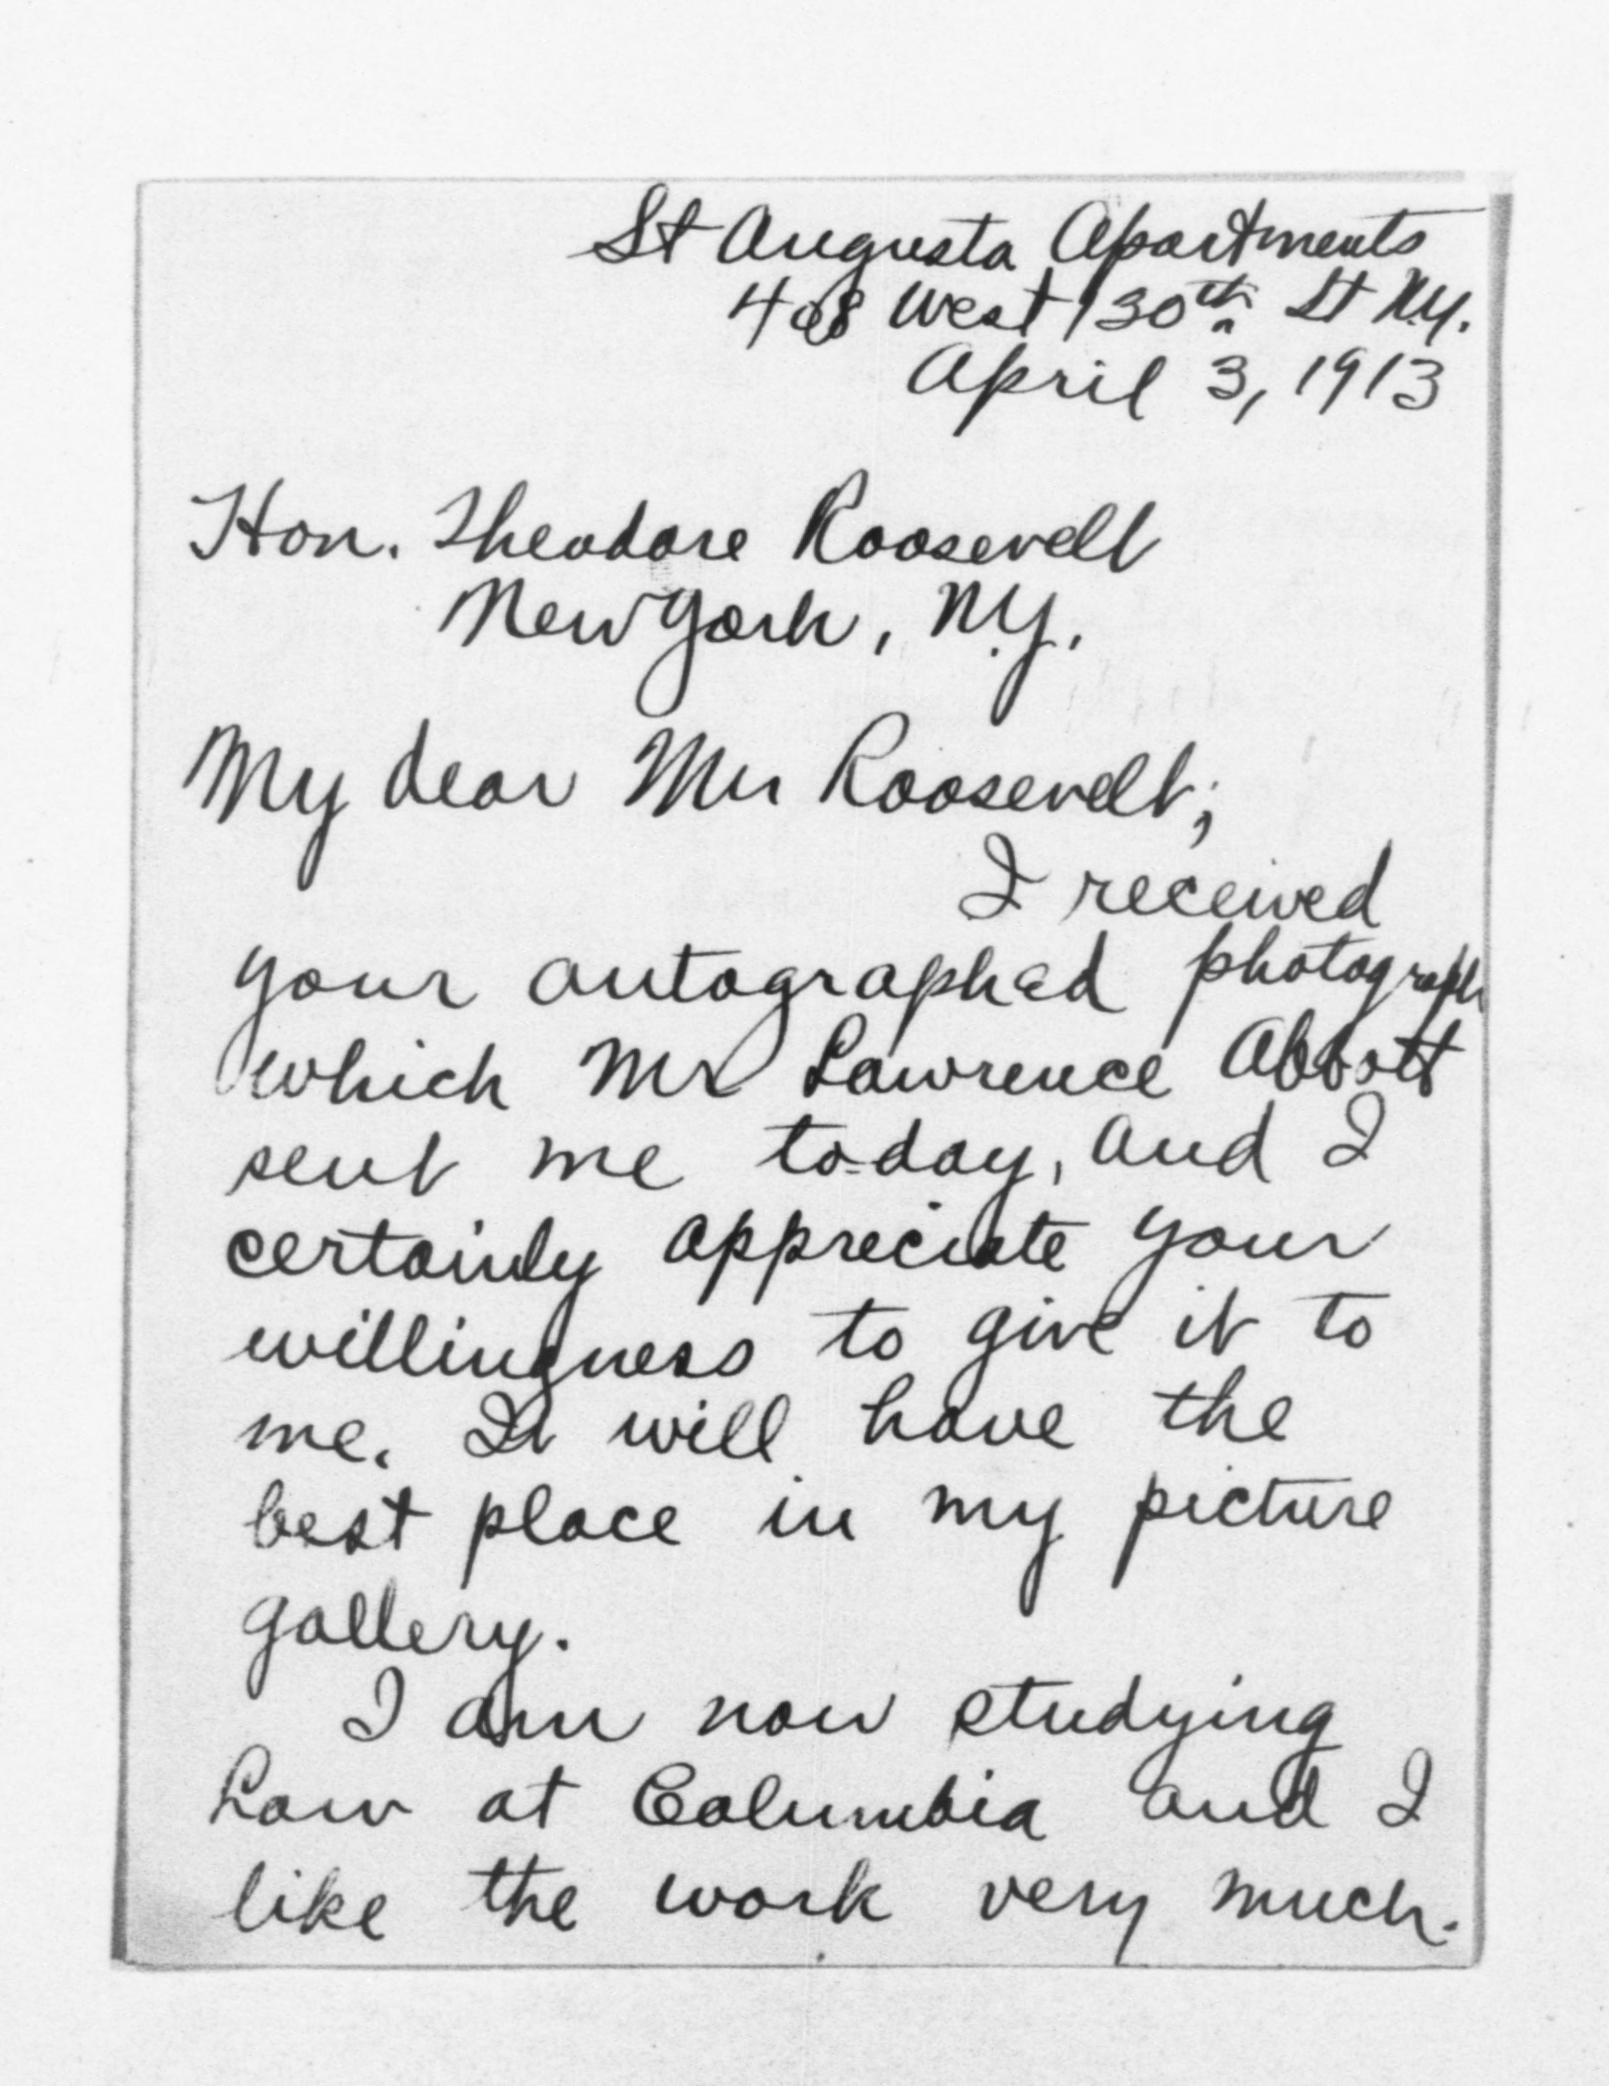 St Augusta Apartments
408 West 130th St N.Y.
April 3, 1913
Hon. Theodore Roosevelt
New York, N.Y.
My dear Mr Roosevelt;
I received
your autographed photograph
which Mr Lawrence Abbott
sent me to-day, and I
certainly appreciate your
willingness to give it to
me. It will have the
best place in my picture
gallery.
I am now studying
Law at Columbia and I
like the work very much.